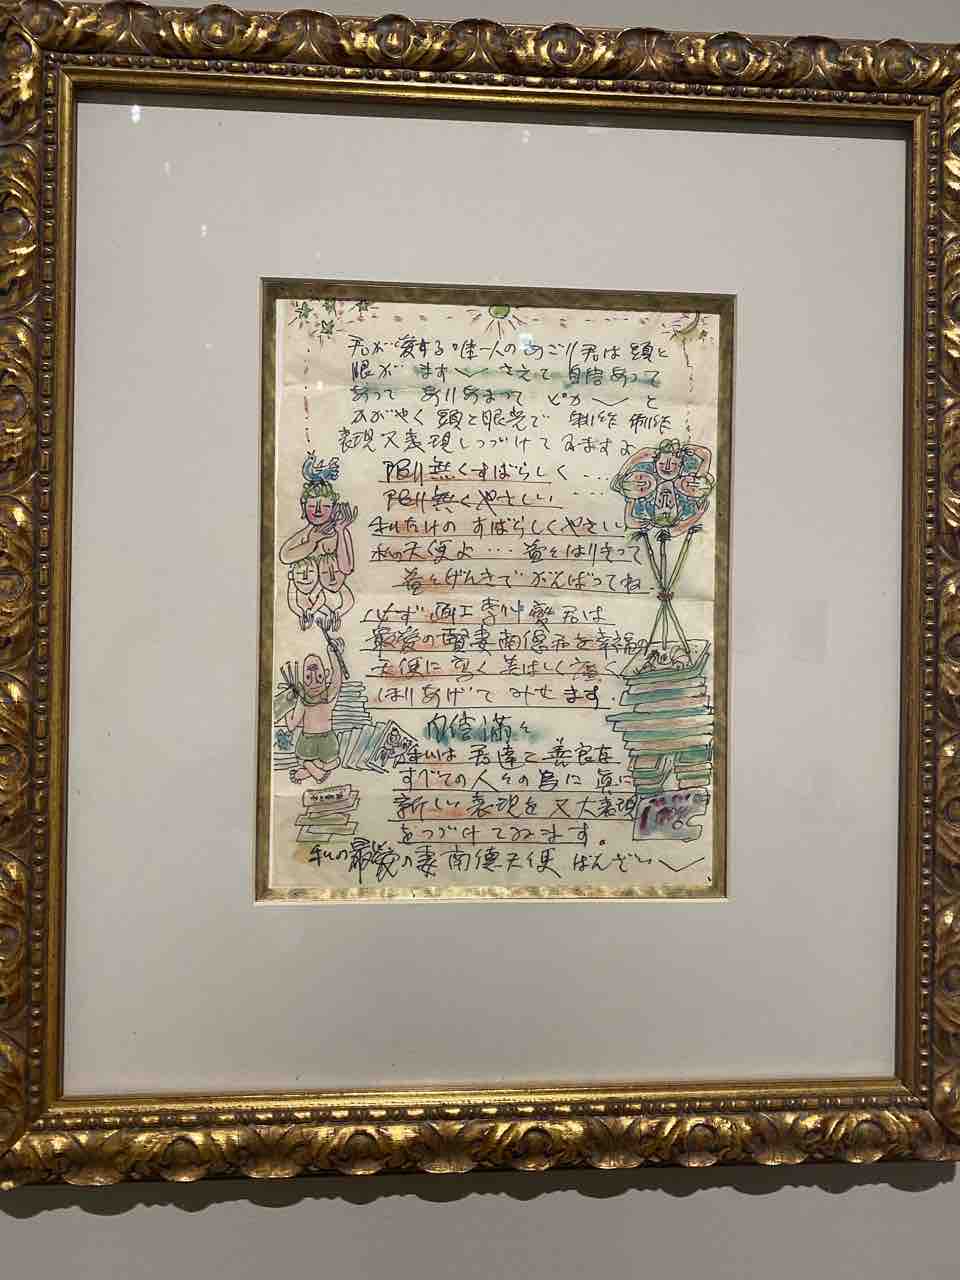 君が愛する唯一人のあごり君は頭と
眼が ますます さえて 自信あって
あって ありあまって ピカピカ と
かがやく 頭と眼光で 制作 制作
表現又表現しつづけてゐますよ
限り無くすばらしく…
限り無くやさしい…
私だけの すばらしくやさしい
私の天使よ…益々はりきって
益々げんきで がんばってね
必ず 画工 李仲燮君は
最愛の賢妻南徳君を幸福の
天使に 美しく
ほりあげて みせます。
自信満々
私は 君達と 善良な
すべての人々の為に 真に
新しい 表現を 又 大表現
をつづけてゐます。
私の最愛の妻南徳天使 ばんざい